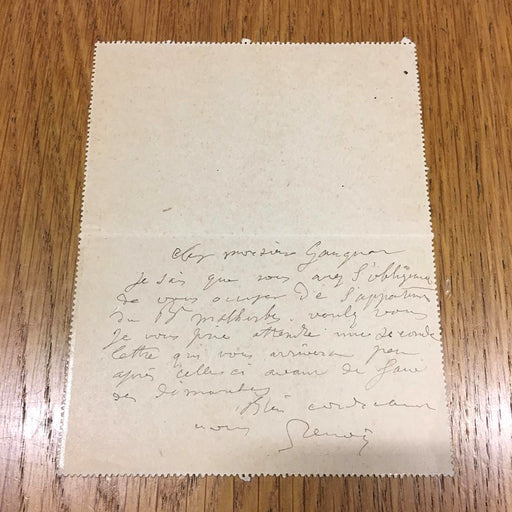 cher monsieur Gangnat
je sais que vous avez l'obligeance
de vous occuper de l'appartement
du Bd Malherbe. voulez vous
je vous prie attendre une seconde
lettre qui vous arrivera peu
après celle ci avant de faire
des démarches
Bien cordialement
vous Renoir